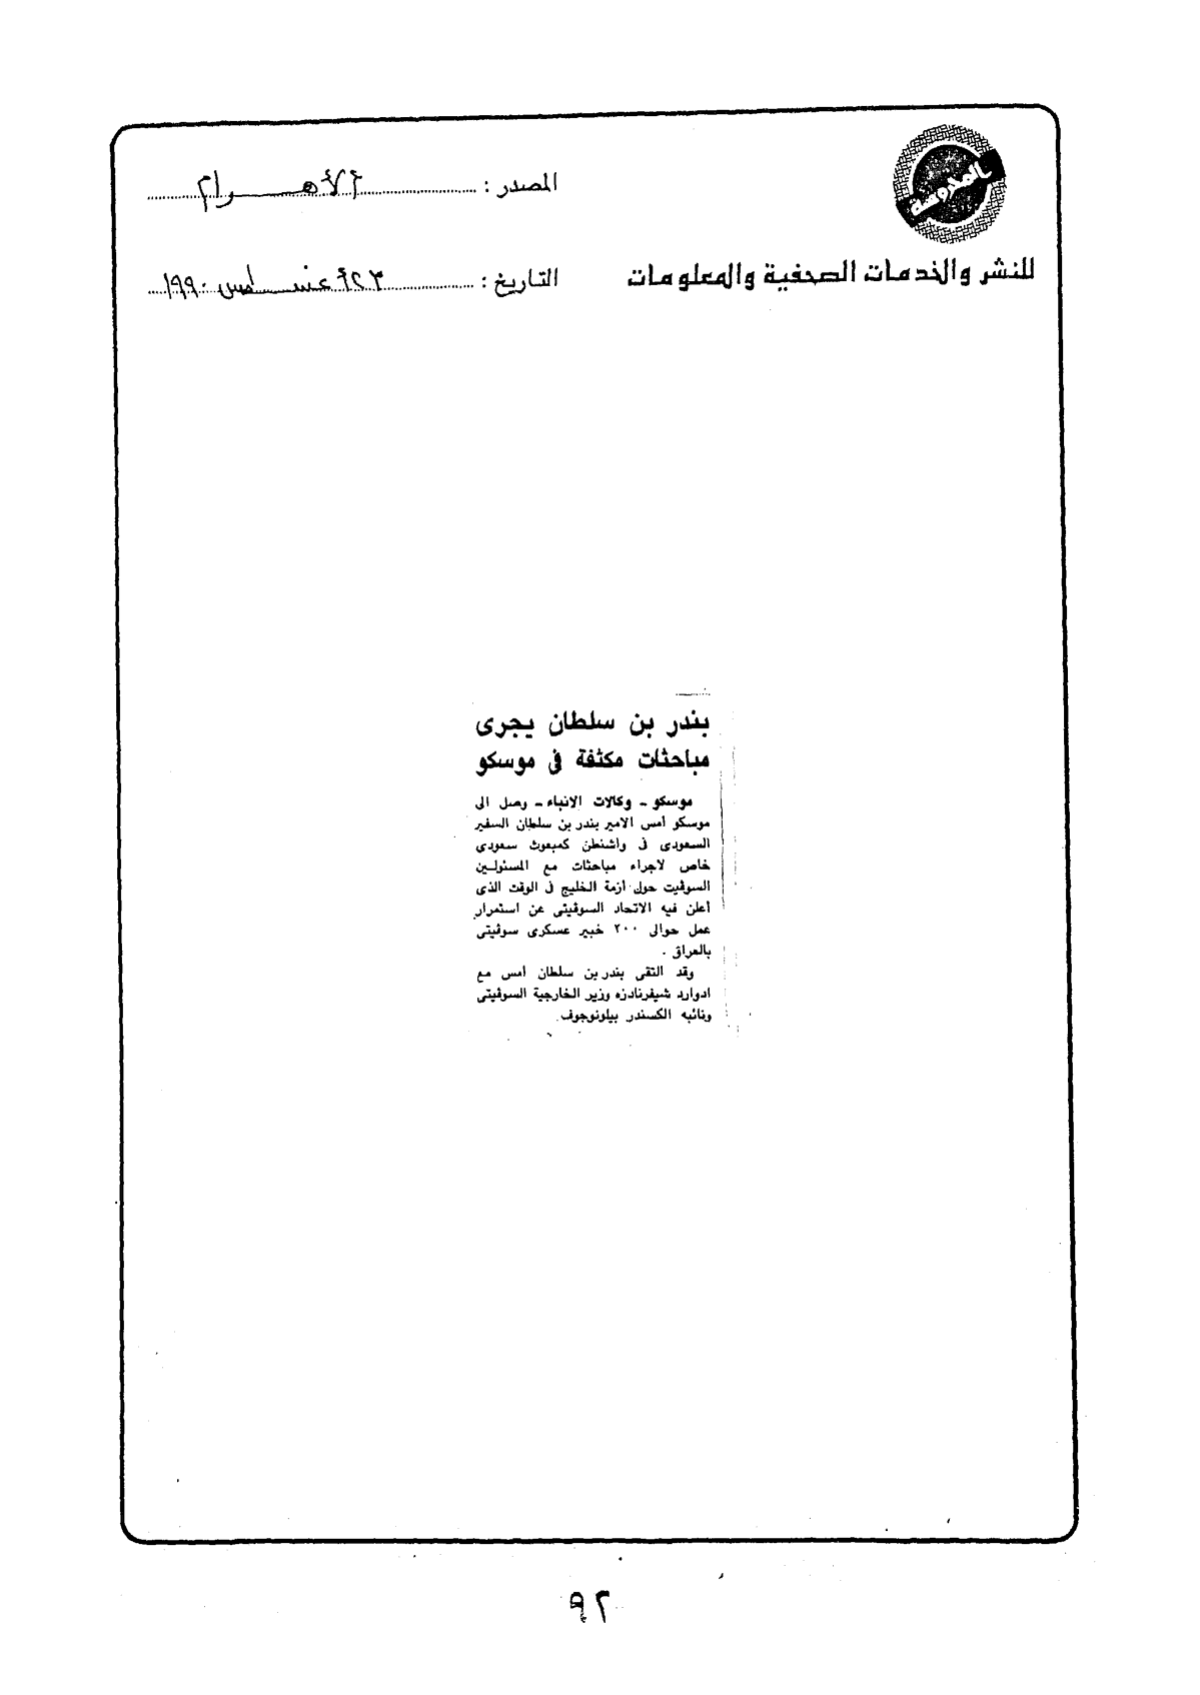 المحروسة
المصدر : الأهرام
للنشر والخدمات الصحفية والمعلومات
التاريخ : ٢٣ أغسطس ١٩٩٠
بندر بن سلطان يجرى
مباحثات مكثفة فى موسكو
موسكو - وكالات الانباء - وصل الى
موسكو أمس الامير بندر بن سلطان السفير
السعودى فى واشنطن كمبعوث سعودى
خاص لاجراء مباحثات مع المسئولين
السوڤيت حول أزمة الخليج فى الوقت الذى
أعلن فيه الاتحاد السوڤيتى عن استمرار
عمل حوالى ٢٠٠ خبير عسكرى سوڤيتى
بالعراق .
وقد التقى بندر بن سلطان أمس مع
ادوارد شيفرنادزه وزير الخارجية السوڤيتى
ونائبه الكسندر بيلونوجوف .
٩٢